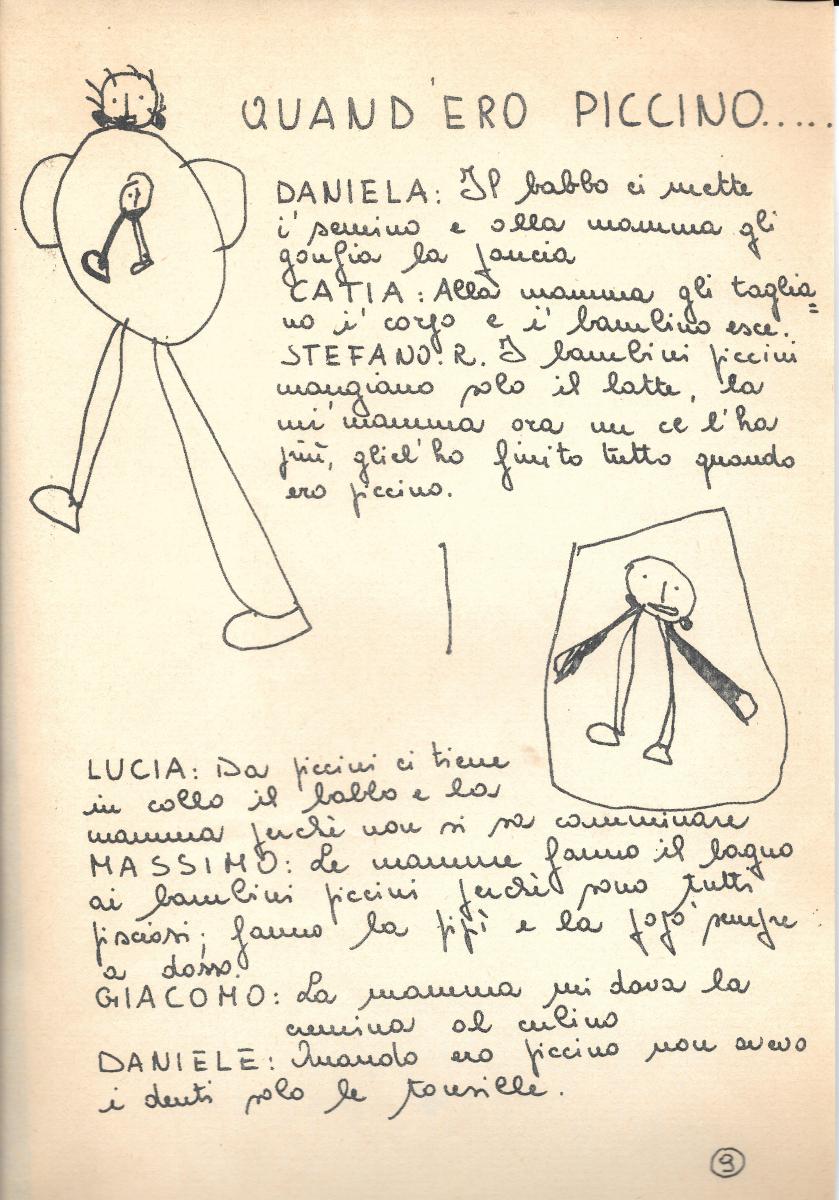 QUAND'ERO PICCINO.....
DANIELA: Il babbo ci mette
i' semino e alla mamma gli
gonfia la pancia
CATIA: Alla mamma gli taglia=
no i' corpo e i' bambino esce.
STEFANO. R. I bambini piccini
mangiano solo il latte, la
mi' mamma ora un ce l'ha
più, gliel'ho finito tutto quando
ero piccino.
LUCIA: Da piccini ci tiene
in collo il babbo e la
mamma perchè non si sa camminare
MASSIMO: Le mamme fanno il bagno
ai bambini piccini perchè sono tutti
pisciosi; fanno la pipì e la popò sempre
a dosso.
GIACOMO: La mamma mi dava la
cremina al culino
DANIELE: Quando ero piccino non avevo
i denti solo le tonsille.
9